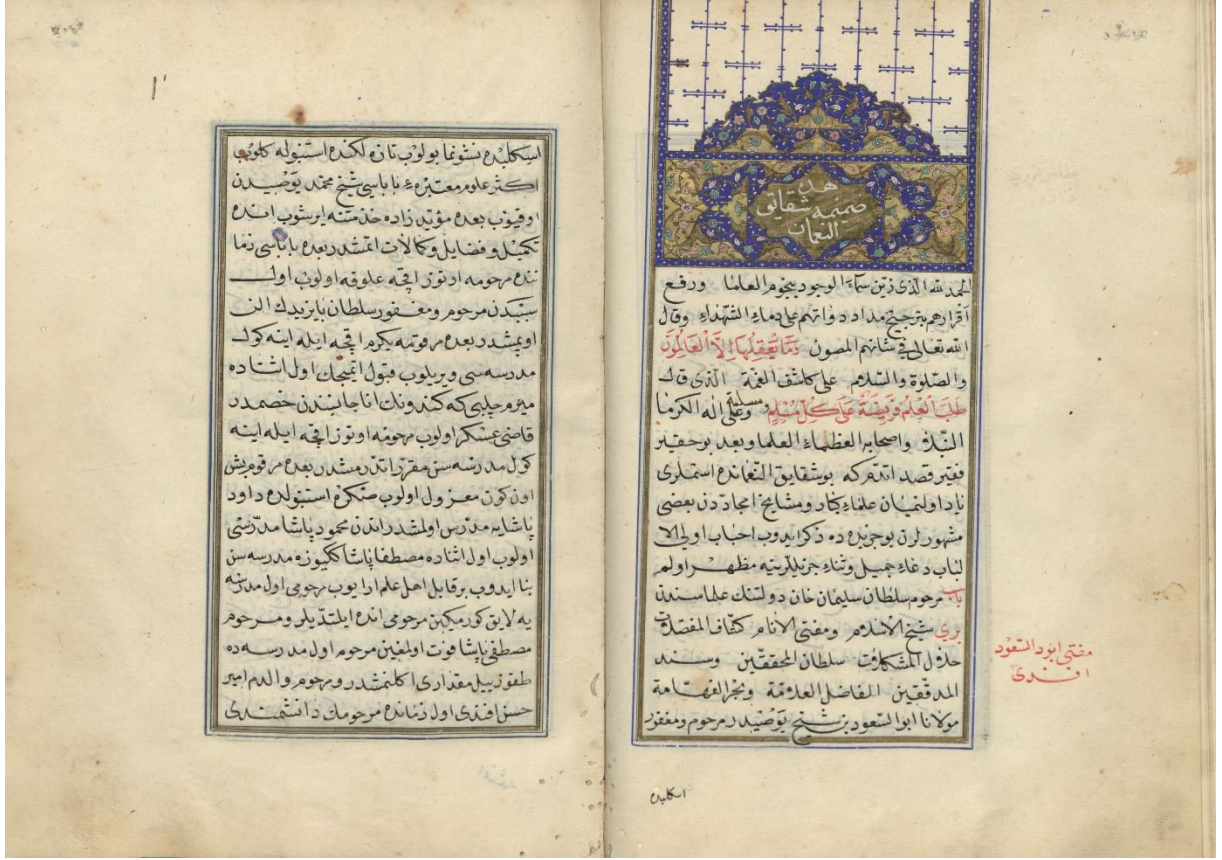 هذه
ضميمه شقايق
النعمان
الحمد لله الذى زين سماء الوجود بنجوم العلما ورفع
اقرارهم بترجيح مداد دواتهم على دماء الشهداء وقال
الله تعالى فى شانهم المصون وَمَا يَعْقِلُهَا اِلاَّ الْعَالِمُونَ
والصلوة والسلام على كاشف الغمة الذى قال
طَلَبُ الْعِلْمِ فَرِيضَةٌ عَلَى كُلِّ مُسْلِمٍ ومسلمة وعلى اله الكرما
واصحابه العظماء العلما وبعد بر حقير
فقير قصد اتدم كه بو شقايق النعمانده اسملرى
ياد اولنميان علماء كبار ومشايخ امجاددن بعضى
مشهورلرن بو جريده ده ذكر ايدوب احباب اولى الا
لباب دعاء جميل وثناء جزيللرينه مظهر اولم
باب مرحوم سلطان سليمان خان دولتنك علماسندن
برى شيخ الاسلام ومفتى الانام كشاف المعضلات
حلال المشكلات سلطان المحققين وسند
المدققين الفاضل العلامة وبحر الفهامة
مولانا ابو السعود بن شيخ يوصيدر مرحوم ومغفور
مفتى ابو السعود
افندى
اسكليبده
١
اسكليبده نشونما بولوب تازه لكنده استنبوله كلوب
اكثر علوم معتبره ء باباسى شيخ محمد يوصيدن
اوقيوب بعده مؤيد زاده خدمتنه ايرشوب انده
تكميل وفضايل وكمالات اتمشدر بعده باباسى زما
ننده مرحومه اوتوز اقچه علوفه اولوب اول
سببدن مرحوم ومغفور سلطان بايزيدك الن
اوپمشدر بعده مرقومه يكرم اقچه ايله اينه كول
مدرسه سى ويريلوب قبول ايتميجك اول اثناده
ميرم چلبى كه كندونك انا جانبندن خصمدر
قاضى عسكر اولوب مرحومه اوتوز اقچه ايله اينه
كول مدرسه سن مقرر اتدرمشدر بعده مرقوم بش
اون كون معزول اولوب صكره استنبولده داود
پاشايه مدرس اولمشدر اندن محمود پاشا مدرسى
اولوب اول اثناده مصطفا پاشا ككيوزه مدرسه سن
بنا ايدوب بر قابل اهل علم ارايوب مرحومى اول مدرسه
يه لايق كورميكين مرحومى انده ايلتديلر ومرحوم
مصطفى پاشا فوت اولمغين مرحوم اول مدرسه ده
طقوز ييل مقدارى اكلنمشدر ومرحوم والدم امير
حسن افندى اول زمانده مرحومك دانشمندى